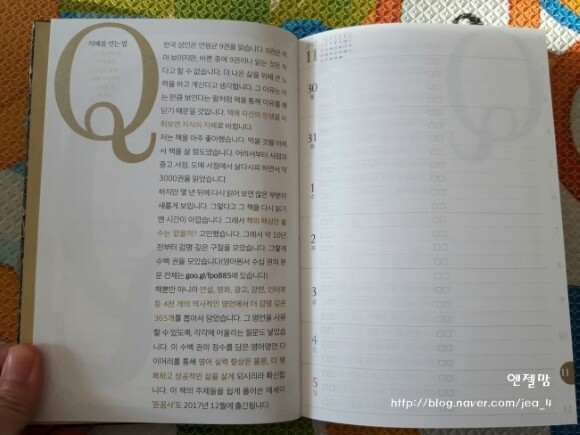 Q
지혜를 얻는 법
한국 성인은 연평균 9권을 읽습니다. 9권은 적
어 보이지만, 바쁜 중에 9권이나 읽는 것은 적
다고 할 수 없습니다. 더 나은 삶을 위해 큰 노
력을 하고 계신다고 생각합니다. 그 이유는 아
는 만큼 보인다는 말처럼 책을 통해 이유를 깨
닫기 때문일 것입니다. 책에 자신의 인생을 비
춰보면 지식이 지혜로 바뀝니다.
저는 책을 아주 좋아했습니다. 먹을 것을 아껴
서 책을 살 정도였습니다. 어려서부터 서점과
중고 서점, 도매 서점에서 살다시피 하면서 약
3000권을 읽었습니다.
하지만 몇 년 뒤에 다시 읽어 보면 많은 부분이
새롭게 보입니다. 그렇다고 그 책을 다시 읽기
엔 시간이 아깝습니다. 그래서 책의 핵심만 볼
수는 없을까? 고민했습니다. 그래서 약 10년
전부터 감명 깊은 구절을 모았습니다. 그렇게
수백 권을 모았습니다(영어원서 수십 권의 본
문 전체는 goo.gl/fpo885에 있습니다).
책뿐만 아니라 연설, 영화, 광고, 강연, 인터뷰
등 4천 개의 역사적인 명언에서 더 감명 깊은
365개를 뽑아서 담았습니다. 그 명언을 사유
할 수 있도록, 각각에 어울리는 질문도 넣었습
니다. 이 수백 권의 정수를 담은 영어명언 다
이어리를 통해 영어 실력 향상은 물론, 더 행
복하고 성공적인 삶을 살게 되시리라 확신합
니다. 이 책의 주제들을 쉽게 풀어쓴 에세이
'돈꿈사'도 2017년 12월에 출간됩니다.
11
30
월
31
화
1
수
2
목
3
금
4
토
5
일
11
12
엔젤맘
http://blog.naver.com/jea_4